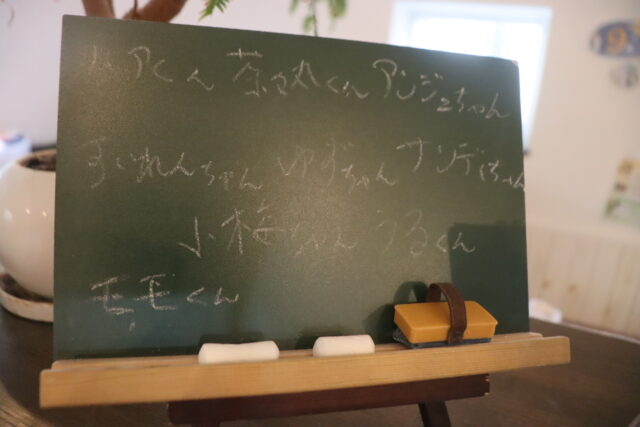 ルアくん 奈々丸くん アンジュちゃん
すいれんちゃん ゆずちゃん サンディちゃん
小梅ちゃん うるくん
モモくん